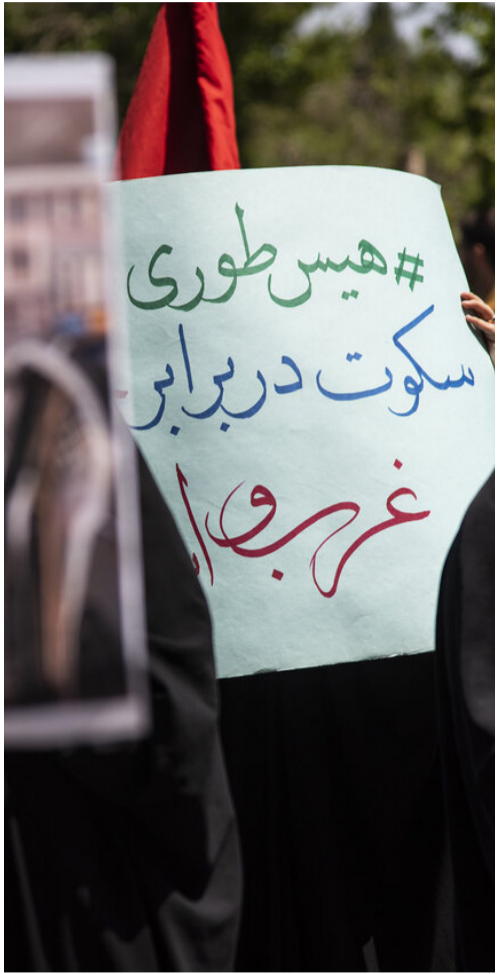 #هیس‌طوری
سکوت در برابر
غرب و